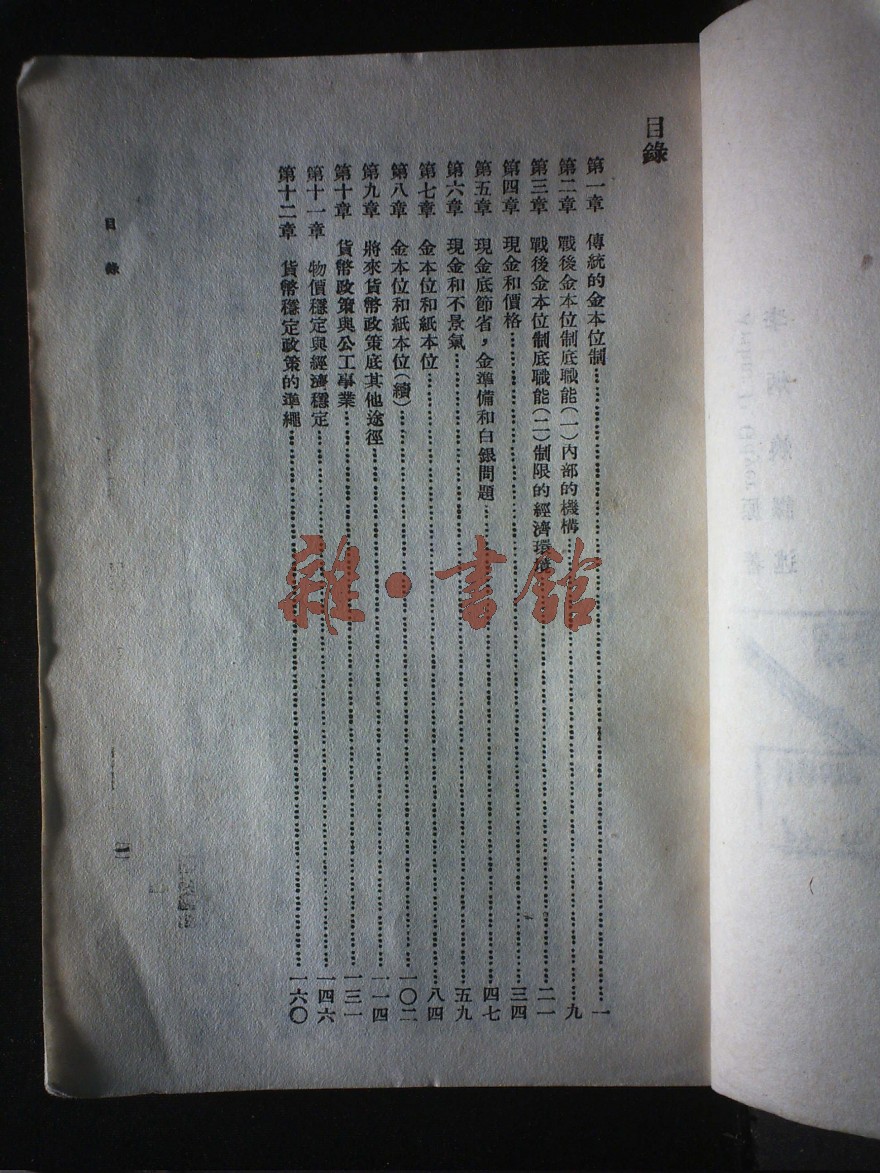 目錄
第一章 傳統的金本位制……一
第二章 戰後金本位制底職能(一)內部的機構……九
第三章 戰後金本位制底職能(二)制限的經濟環境……二一
第四章 現金和價格……三四
第五章 現金底節省，金準備和白銀問題……四七
第六章 現金和不景氣……五九
第七章 金本位和紙本位……八四
第八章 金本位和紙本位(續)……一〇二
第九章 將來貨幣政策底其他途徑……一一四
第十章 貨幣政策與公工事業……一三一
第十一章 物價穩定與經濟穩定……一四六
第十二章 貨幣穩定政策的準繩……一六〇
目錄
一
雜·書館